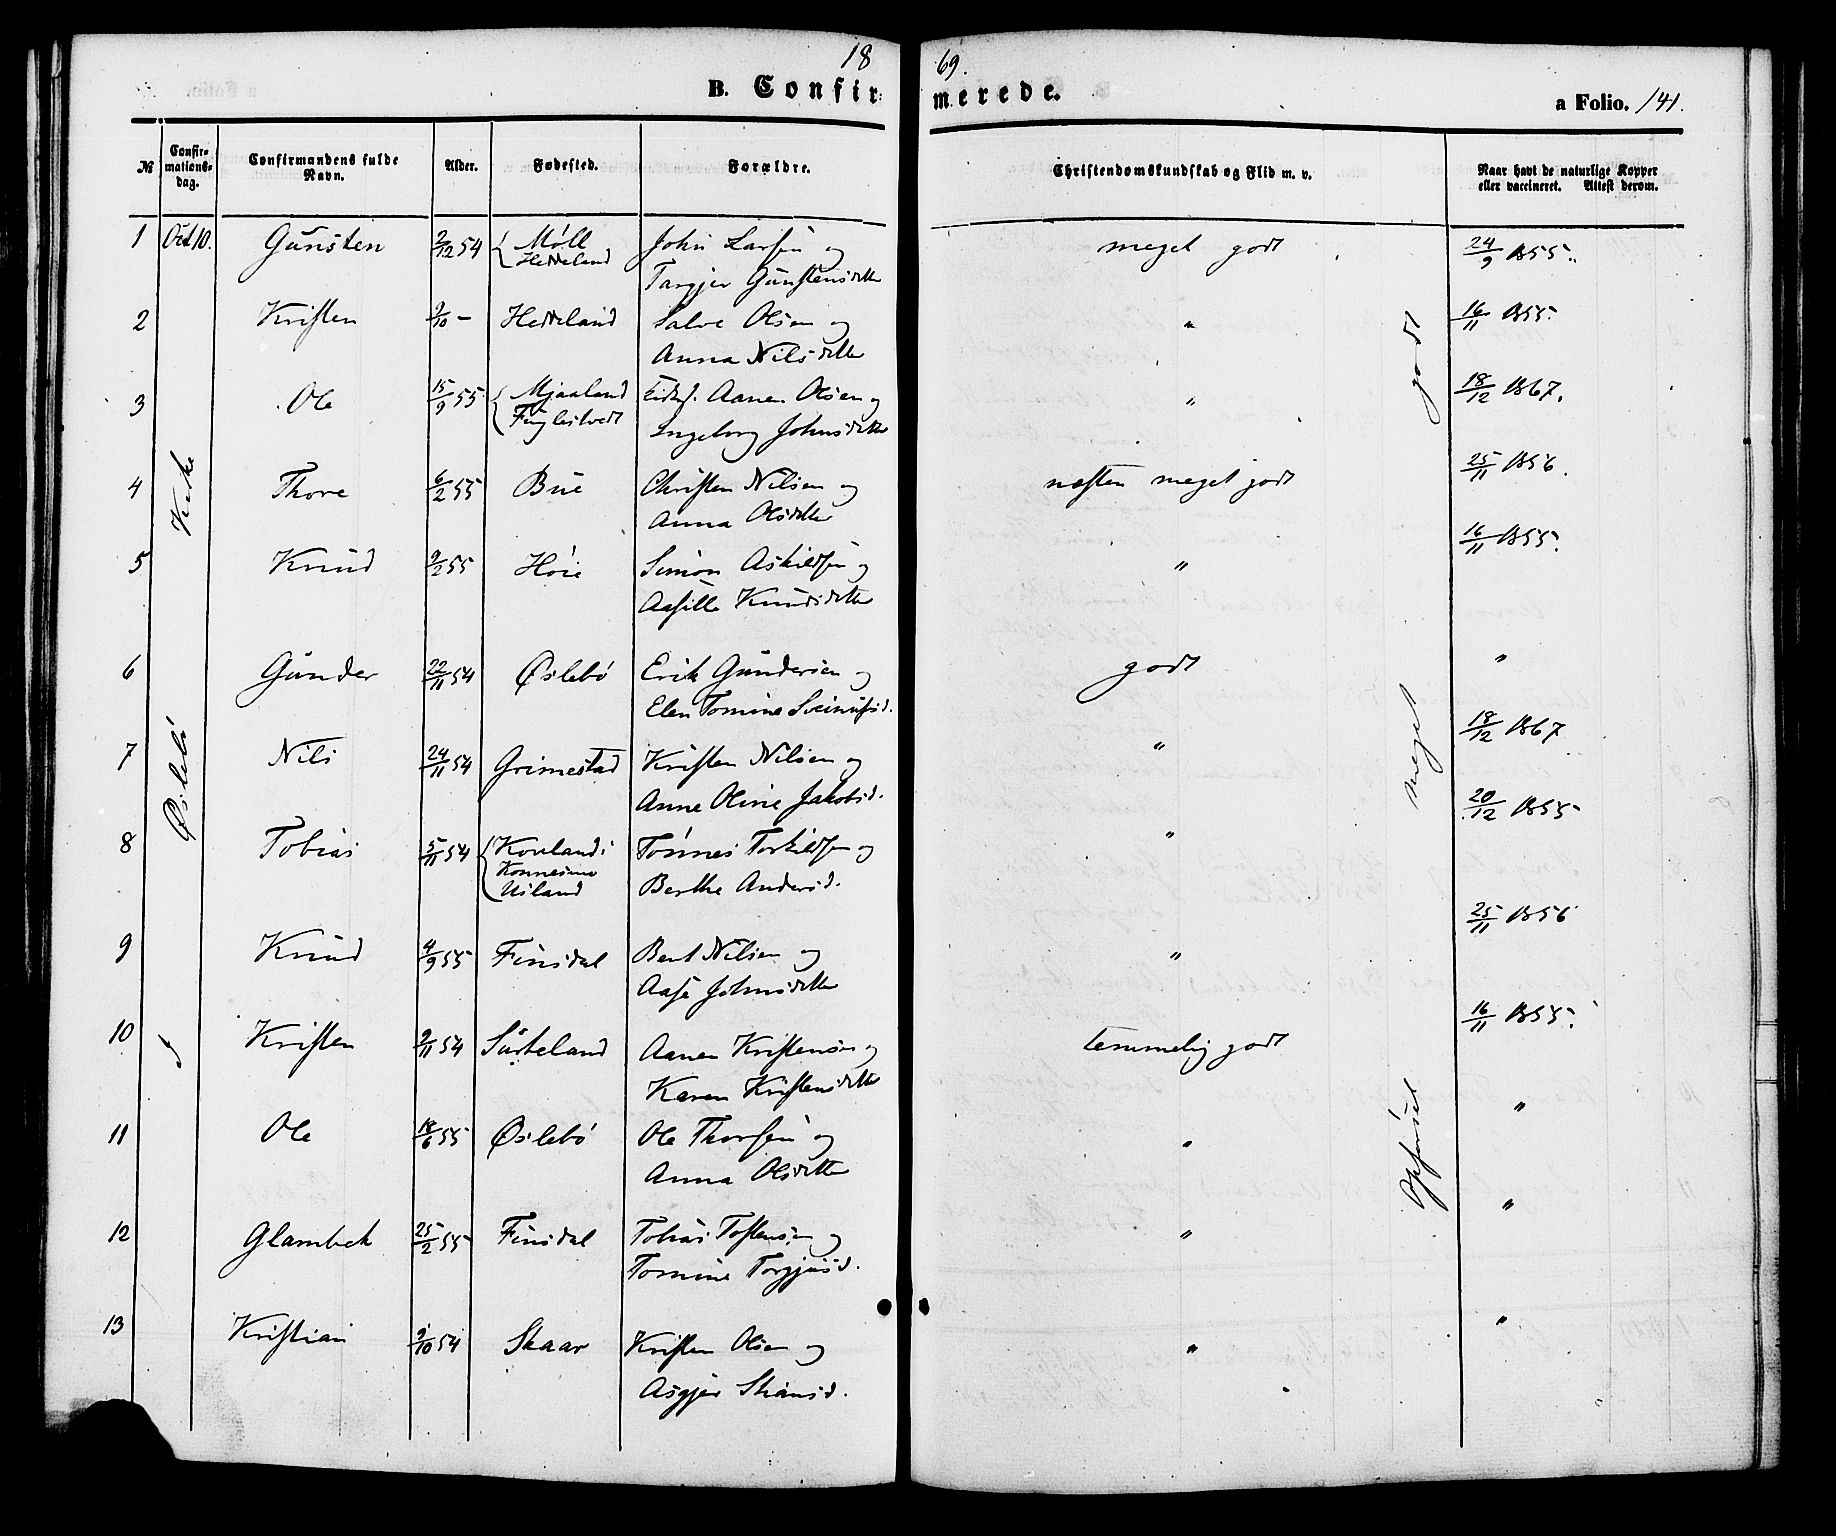 18 69.
B. Confirmerede.
a Folio. 141.
№ Confirmationsdag. Confirmandens fulde Navn. Alder. Fødested. Forældre. Christendomskundskab og Flid m. v. Naar havt de naturlige Kopper eller vaccineret. Attest derom.
1 Oct 10. Gunsten 2/12 54 Møll John Larsen og meget godt 24/9 1855.
Heddeland Targjer Gunstensdatter
2 Kristen 9/10 – Heddeland Salve Olsen og " 16/11 1855.
Anna Nilsdatter
3 Ole 15/9 55 Mjaaland Aanen Olsen og " 18/12 1867.
Fuglestvedt Ingeborg Johnsdatter
4 Thore 6/2 55 Bue Christen Nilsen og næsten meget godt 25/11 1856.
Anna Olsdatter
5 Knud 9/2 55 Høie Simon Askildsen og " 16/11 1855.
Aasille Knudsdatter
6 Gunder 22/11 54 Øslebø Erik Gundersen og godt "
Elen Tomine
7 Nils 24/11 54 Grimestad Kristen Nilsen og " 18/12 1867
Anne Oline Jakobsd.
8 Tobias 5/11 54 Kovland i Tønnes Torkildsen og " 20/12 1855
Konnesmo Berthe Andersd.
Usland
9 Knud 4/9 55 Finsdal Bent Nilsen og " 25/11 1856
Aase Johnsdatter
10 Kristen 9/11 54 Surteland Aanen Kristensen og temmelig godt 16/11 1855.
Karen Kristensdatter
11 Ole 18/6 55 Øslebø Ole Thorsen og " "
Anna Olsdatter
12 Glambek 25/2 55 Finsdal Tobias Tostensen og " "
Tomine Torgjusd.
13 Kristian 9/10 54 Skaar Kristen Olsen og " "
Asgjer
i Øslebø Kirke
Opførsel meget godt